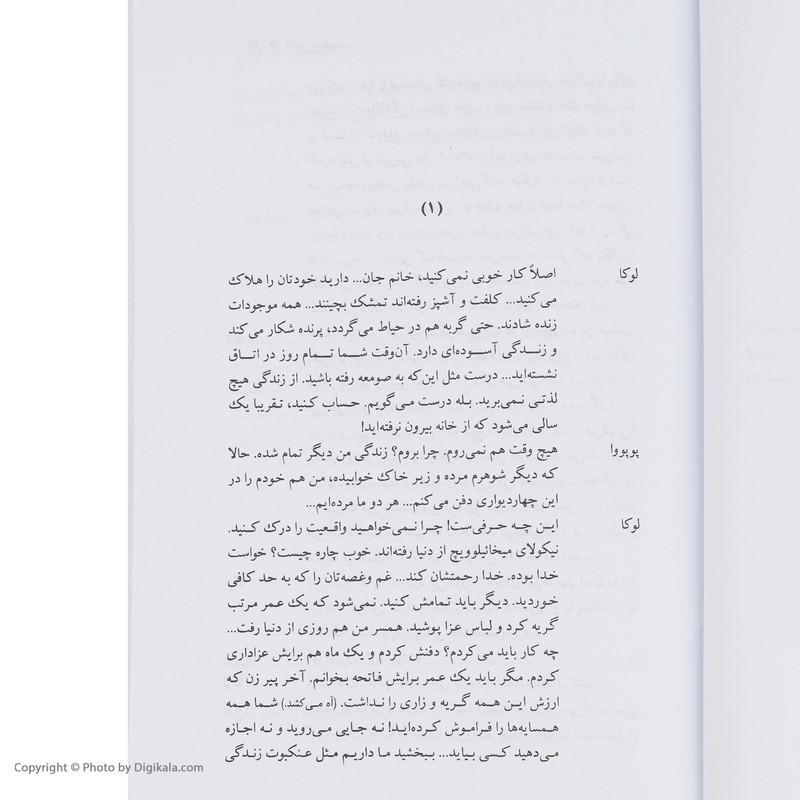 (۱)
لوکا اصلاً کار خوبی نمی‌کنید، خانم جان... دارید خودتان را هلاک
می‌کنید... کلفت و آشپز رفته‌اند تمشک بچینند... همه موجودات
زنده شادند. حتی گربه هم در حیاط می‌گردد، پرنده شکار می‌کند
و زندگی آسوده‌ای دارد. آن‌وقت شما تمام روز در اتاق
نشسته‌اید... درست مثل این‌که به صومعه رفته باشید. از زندگی هیچ
لذتی نمی‌برید. بله درست می‌گویم. حساب کنید، تقریبا یک
سالی می‌شود که از خانه بیرون نرفته‌اید!
پوپووا هیچ وقت هم نمی‌روم. چرا بروم؟ زندگی من دیگر تمام شده. حالا
که دیگر شوهرم مرده و زیر خاک خوابیده، من هم خودم را در
این چهاردیواری دفن می‌کنم... هر دو ما مرده‌ایم...
لوکا این چه حرفی‌ست! چرا نمی‌خواهید واقعیت را درک کنید.
نیکولای میخائیلوویچ از دنیا رفته‌اند. خوب چاره چیست؟ خواست
خدا بوده. خدا رحمتشان کند... غم وغصه‌تان را که به حد کافی
خوردید. دیگر باید تمامش کنید. نمی‌شود که یک عمر مرتب
گریه کرد و لباس عزا پوشید. همسر من هم روزی از دنیا رفت...
چه کار باید می‌کردم؟ دفنش کردم و یک ماه هم برایش عزاداری
کردم. مگر باید یک عمر برایش فاتحه بخوانم. آخر پیر زن که
ارزش این همه گریه و زاری را نداشت. (آه می‌کشد.) شما همه
همسایه‌ها را فراموش کرده‌اید! نه جایی می‌روید و نه اجازه
می‌دهید کسی بیاید... ببخشید ما داریم مثل عنکبوت زندگی
Copyright © Photo by Digikala.com